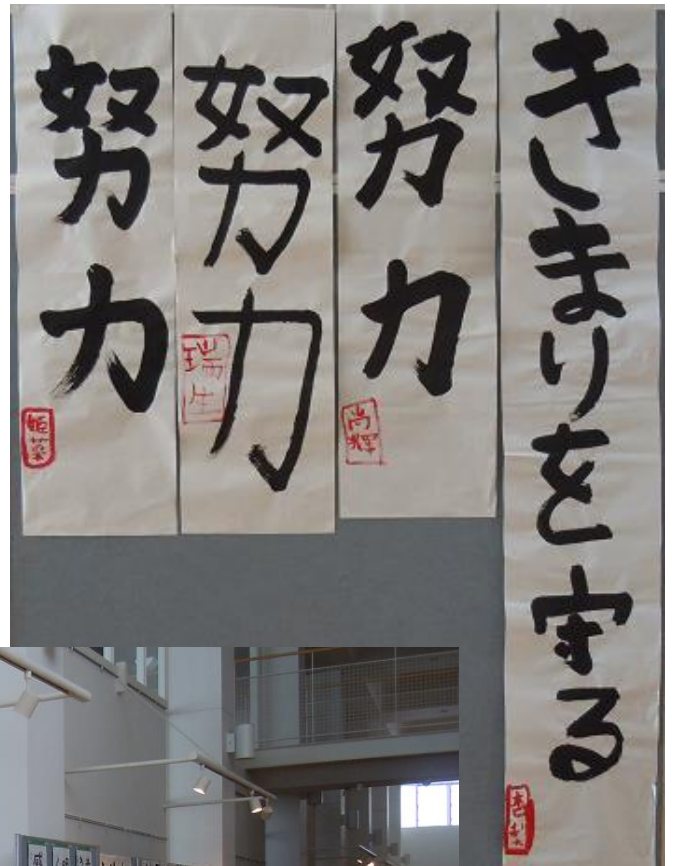 きまりを守る
努力
尚輝
努力
瑞生
努力
姫菜